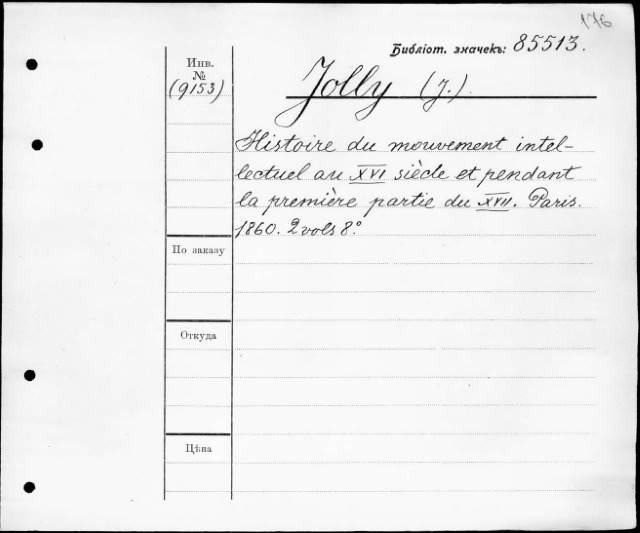 176
Библіот. значекъ: 85513.
Инв.
№
(9153)
Jolly (J.)
Histoire du mouvement intel-
lectuel au XVI siècle et pendant
la première partie du XVII. Paris.
1860. 2 vols 8°
По заказу
Откуда
Цѣна